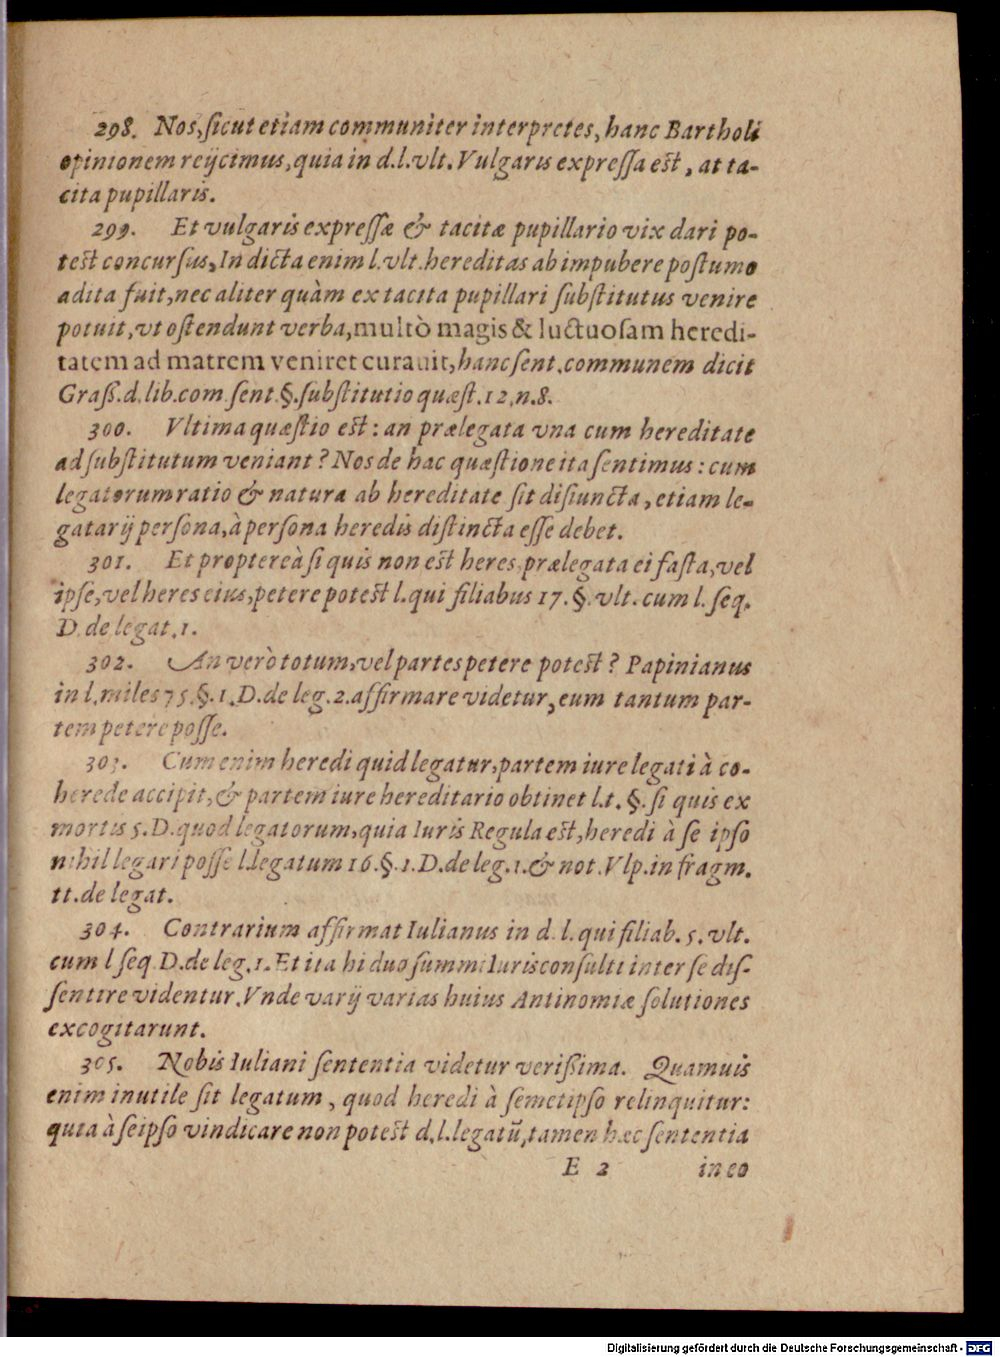 298. Nos, sicut etiam communiter interpretes, hanc Bartholi
opinionem reijcimus, quia in d. l. vlt. Vulgaris expressa est, at ta-
cita pupillaris.
299. Et vulgaris expressæ & tacitæ pupillario vix dari po-
test concursus, In dicta enim l. vlt. hereditas ab impubere postumo
adita fuit, nec aliter quàm ex tacita pupillari substitutus venire
potuit, vt ostendunt verba, multò magis & luctuosam heredi-
tatem ad matrem venire curauit, hanc sent. communem dicit
Graß. d. lib. com. sent. §. substitutio quæst. 12. n. 8.
300. Vltima quæstio est: an prælegata vna cum hereditate
ad substitutum veniant? Nos de hac quæstione ita sentimus: cum
legatorum ratio & natura ab hereditate sit disiuncta, etiam le-
gatarij persona, à persona heredis distincta esse debet.
301. Et proptereà si quis non est heres, prælegata ei fasta, vel
ipse, vel heres eius, petere potest l. qui filiabus 17. §. vlt. cum l. seq.
D. de legat. 1.
302. An verò totum, vel partes petere potest? Papinianus
in l. miles 75. §. 1. D. de leg. 2. affirmare videtur, eum tantum par-
tem petere posse.
303. Cum enim heredi quid legatur, partem iure legati à co-
herede accipit, & partem iure hereditario obtinet l. t. §. si quis ex
mortis 5. D. quod legatorum, quia Iuris Regula est, heredi à se ipso
nihil legari posse l. legatum 16. §. 1. D. de leg. 1. & not. Vlp. in fragm.
tt. de legat.
304. Contrarium affirmat Iulianus in d. l. qui filiab. 5. vlt.
cum l seq. D. de leg. 1. Et ita hi duo summi Iurisconsulti inter se dis-
sentire videntur. Vnde varij varias huius Antinomiæ solutiones
excogitarunt.
305. Nobis Iuliani sententia videtur verißima. Quamuis
enim inutile sit legatum, quod heredi à semetipso relinquitur:
quia à seipso vindicare non potest d. l. legatũ, tamen hæc sententia
E 2 in eo
Digitalisierung gefördert durch die Deutsche Forschungsgemeinschaft - DFG